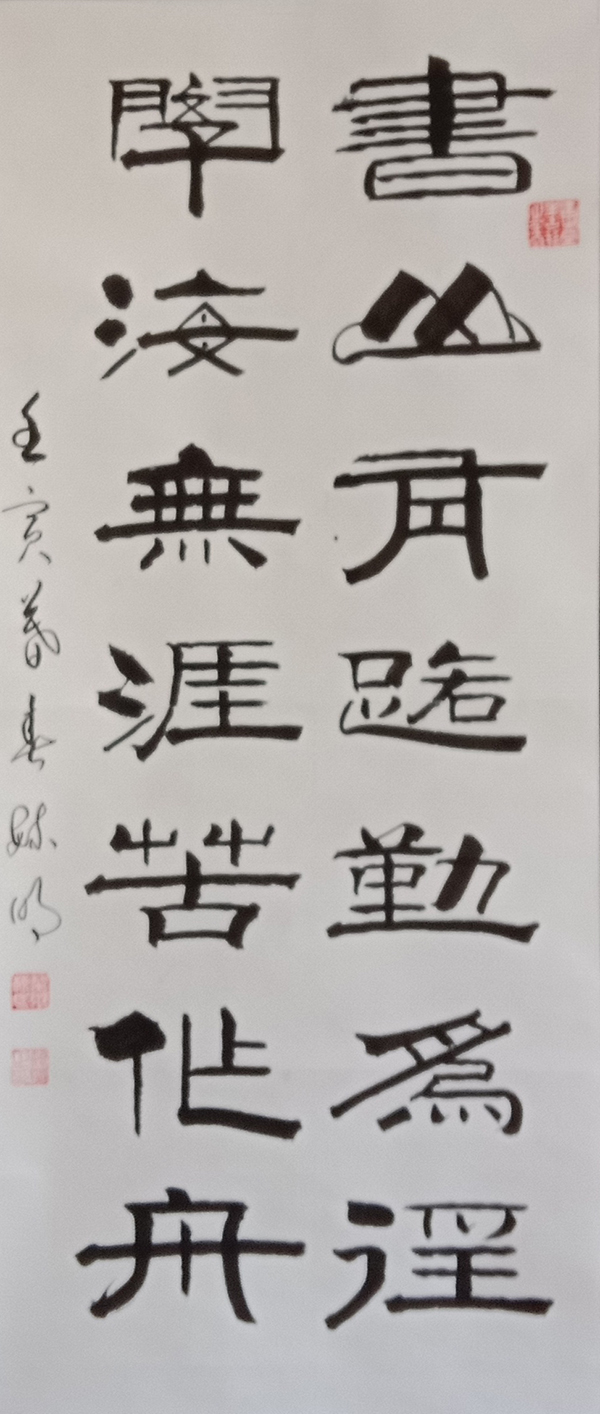 書山有路勤為徑
學海無涯苦作舟
壬寅暮春